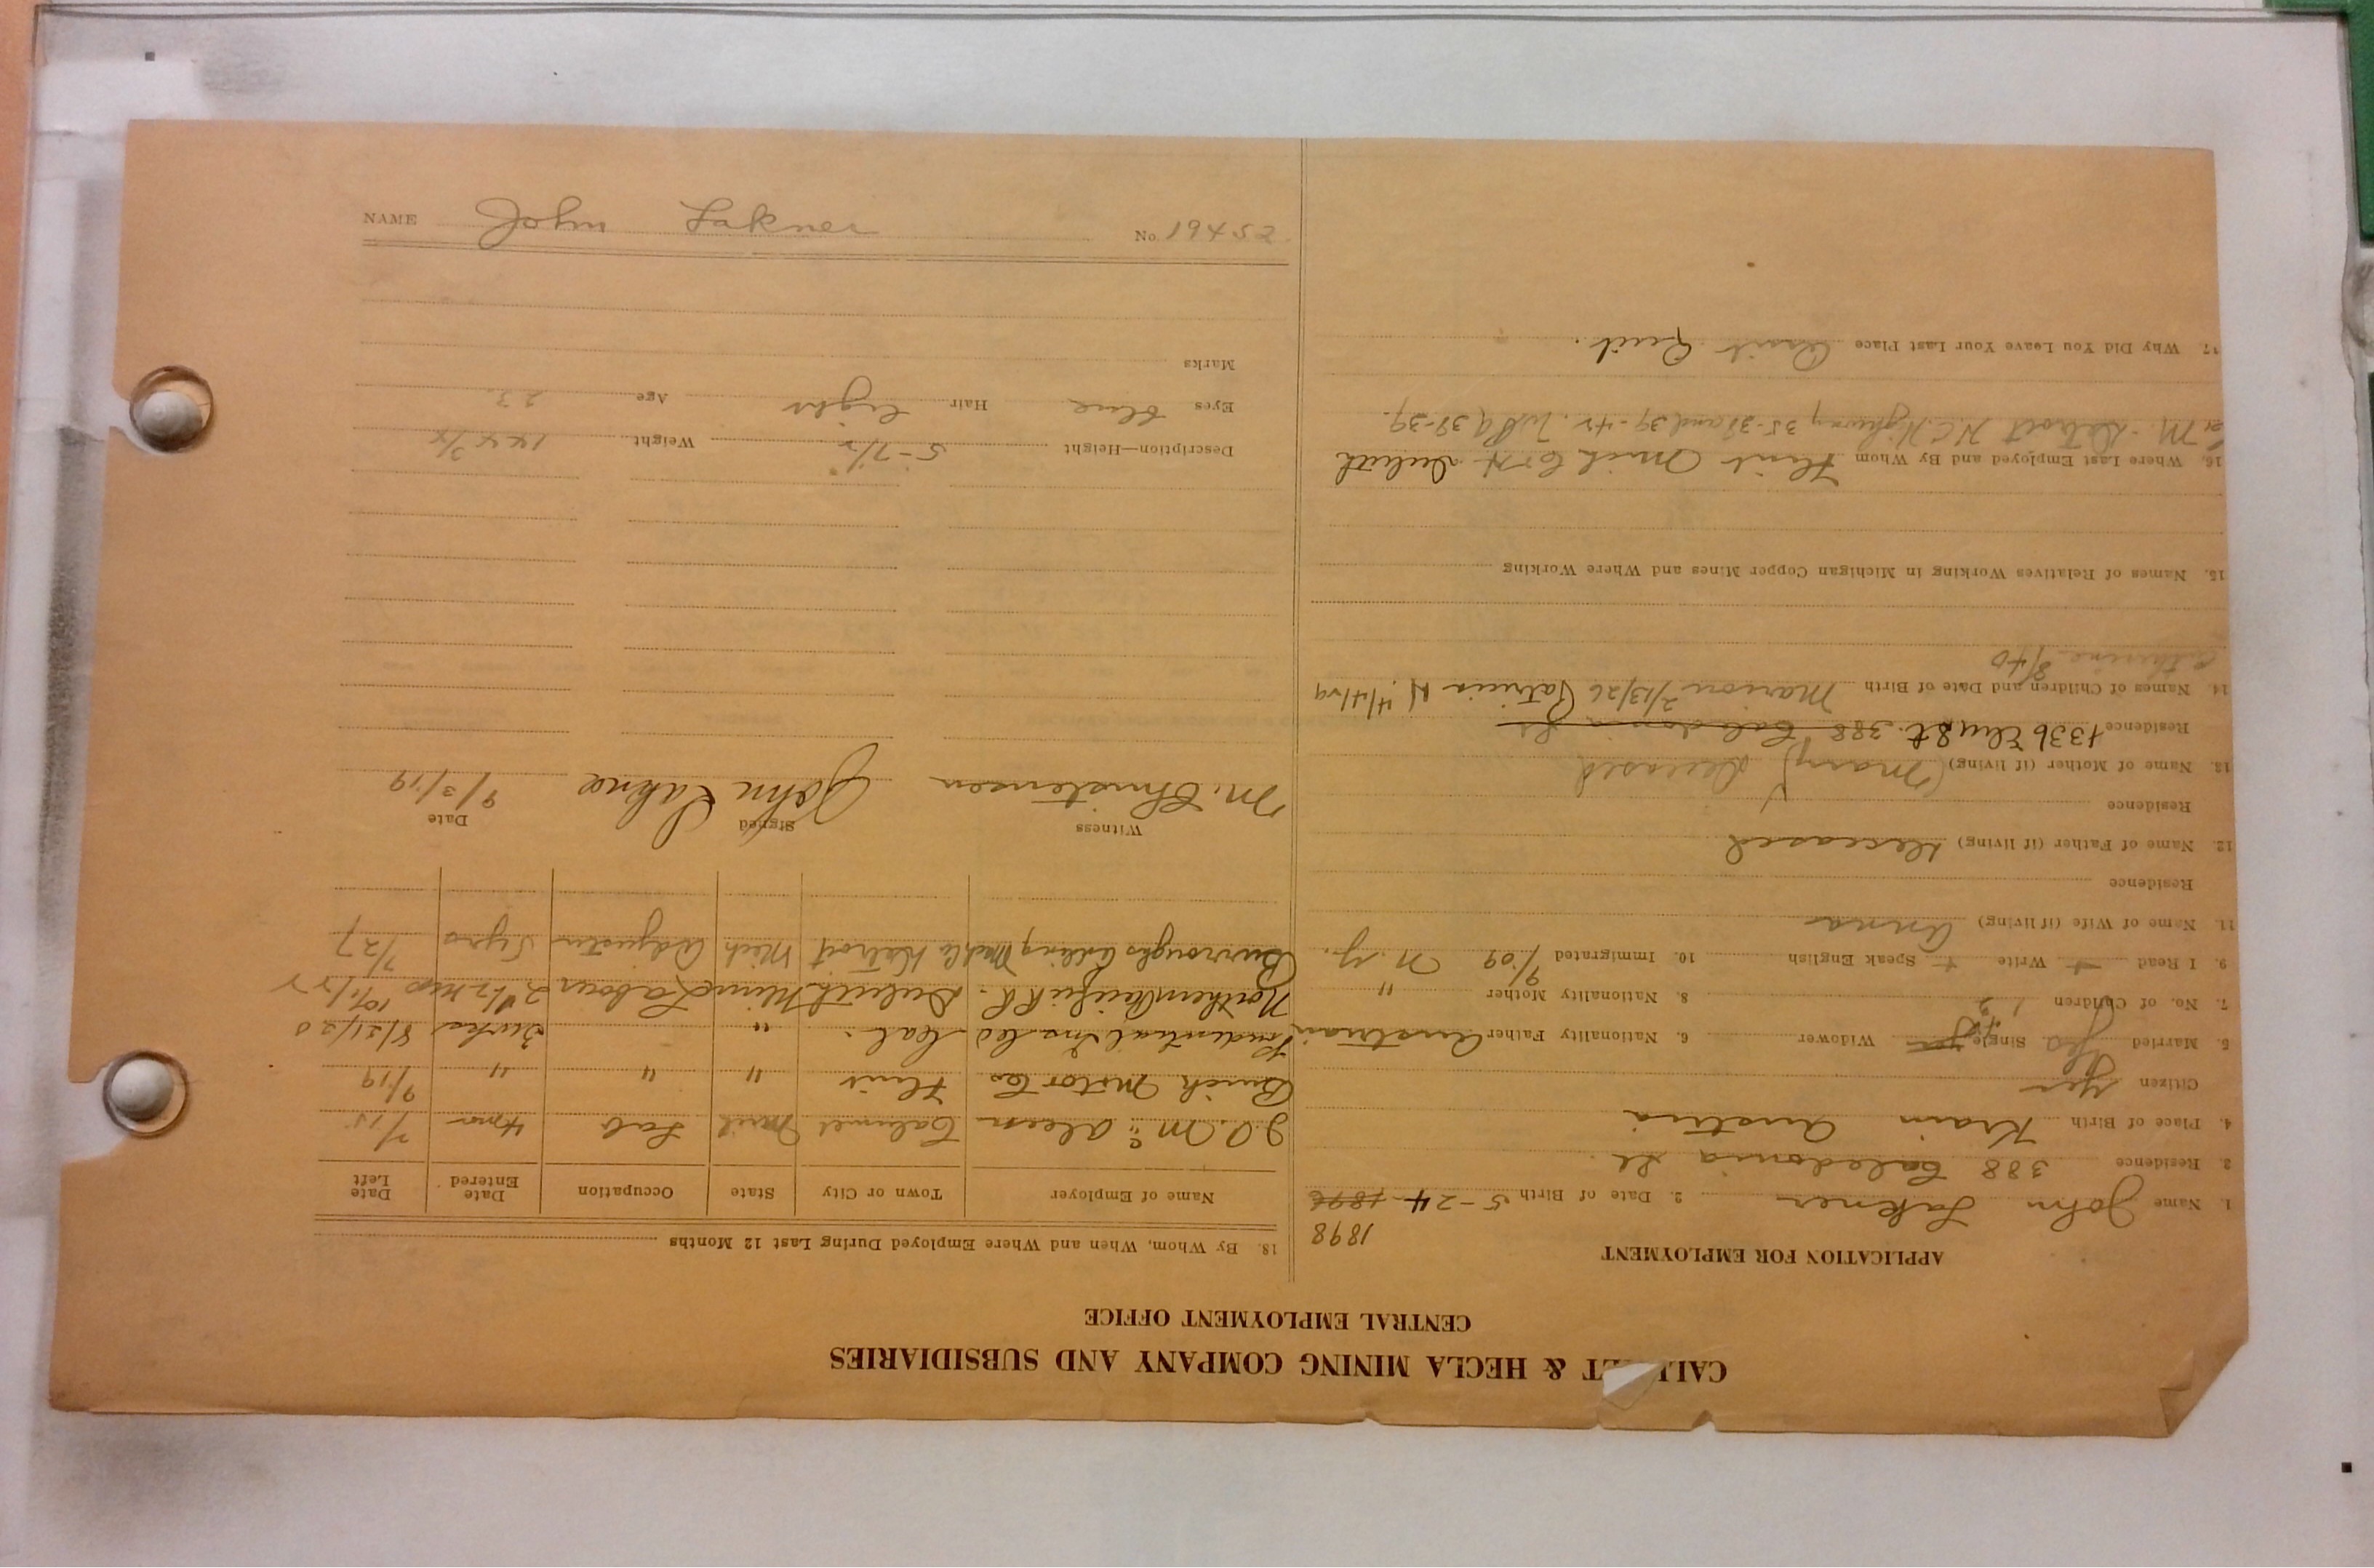 CALUMET & HECLA MINING COMPANY AND SUBSIDIARIES
CENTRAL EMPLOYMENT OFFICE
APPLICATION FOR EMPLOYMENT
1898
1. Name John Lakner 2. Date of Birth 5-24-1896
3. Residence 388 Caledonia St.
4. Place of Birth Krain Austria
Citizen Yes
5. Married Yes Single Yes Widower 6. Nationality Father Austrian
7. No. of Children 1 2 8. Nationality Mother "
9. I Read + Write + Speak English 10. Immigrated 9/09 N.Y.
11. Name of Wife (if living) Anna
Residence
12. Name of Father (if living) Deceased
Residence
13. Name of Mother (if living) (Mary) Deceased
Residence 1336 Elm St. 388 Caledonia St
14. Names of Children and Date of Birth Marion 2/13/26 Patricia N. 4/4/29
Catherine 8/40
15. Names of Relatives Working in Michigan Copper Mines and Where Working
16. Where Last Employed and By Whom Flint Mich Duluth
M. Detroit H.C. Highway 35-38 and 39-42. WPA 38-39.
17. Why Did You Leave Your Last Place Quit.
18. By Whom, When and Where Employed During Last 12 Months
Name of Employer Town or City State Occupation Date Entered Date Left
Calumet Mich Lab 4 mos 7/15
Buick Motor Co. Flint " " " 9/19
Prudential Ins Co Cal. " 8/31/20
Northern Pacific R.R. Duluth Minn Labour 2 1/2 mos 10/1/22
Burroughs Adding Mach Co Detroit Mich Adjuster 5 yrs 7/27
Witness Signed Date
M. Christensen John Lakner 9/3/19
Description—Height 5-7 1/2 Weight 144 3/4
Eyes blue Hair light Age 23
Marks
NAME John Lakner No. 19452